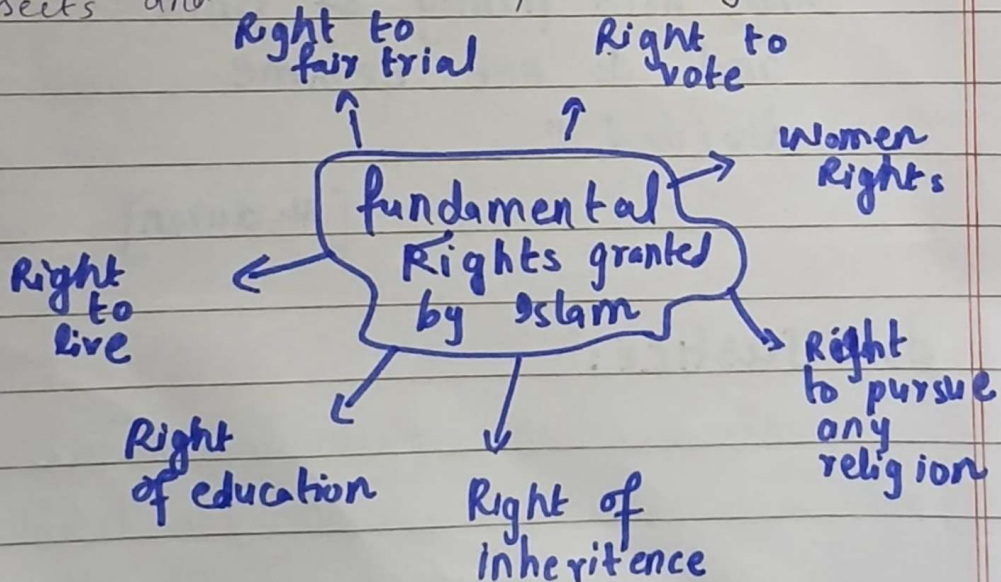 sects and
Right to
fair trial
Right to
vote
Women
Rights
fundamental
Rights granted
by Islam
Right
to
live
Right
to pursue
any
religion
Right
of education
Right of
inheritence